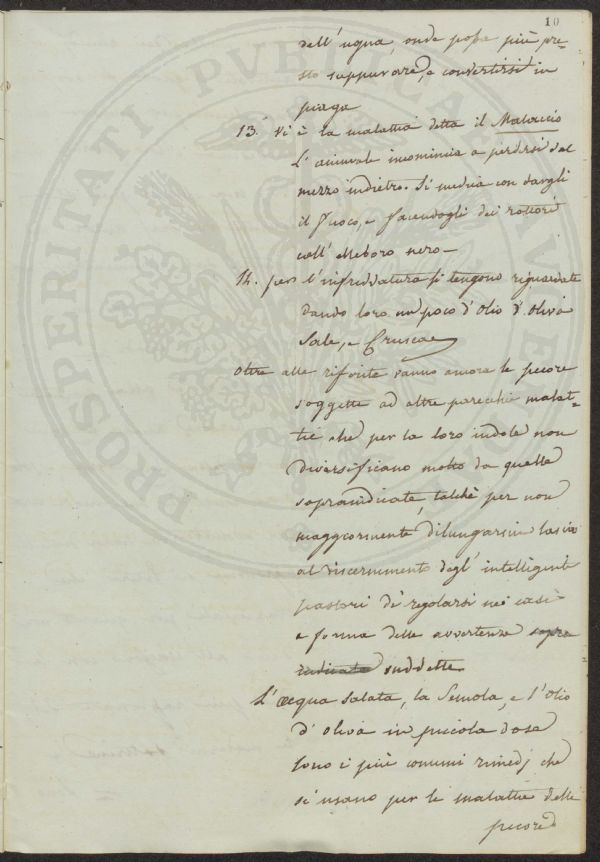 10
dell'ugna, onde possa più pre-
sto suppurare, e convertirsi in
piaga
13. Vi è la malattia detta il Malaccio
L'animale incomincia a perdersi dal
mezzo indietro. Si medica con dargli
il fuoco, e facendogli dei rottori
coll'elleboro nero—
14. per l'infreddatura si tengono riguardate
dando loro un poco d'Olio d'Oliva
Sale, e Crusca
Oltre alle rifferite vanno ancora le pecore
soggette ad altre parecchie malat-
tie che per la loro indole non
diversificano molto da quelle
sopraindicate, talchè per non
maggiormente dilungarsi lascia
al discernimento degl'intelligenti
pastori di regolarsi nei casi
a forma delle avvertenze sopra
indicate suddette
L'acqua salata, la Semola, e l'Olio
d'oliva in piccola dose
sono i più comuni rimedj che
si usano per le malattie delle
pecore
PROSPERITATI PUBLICAE